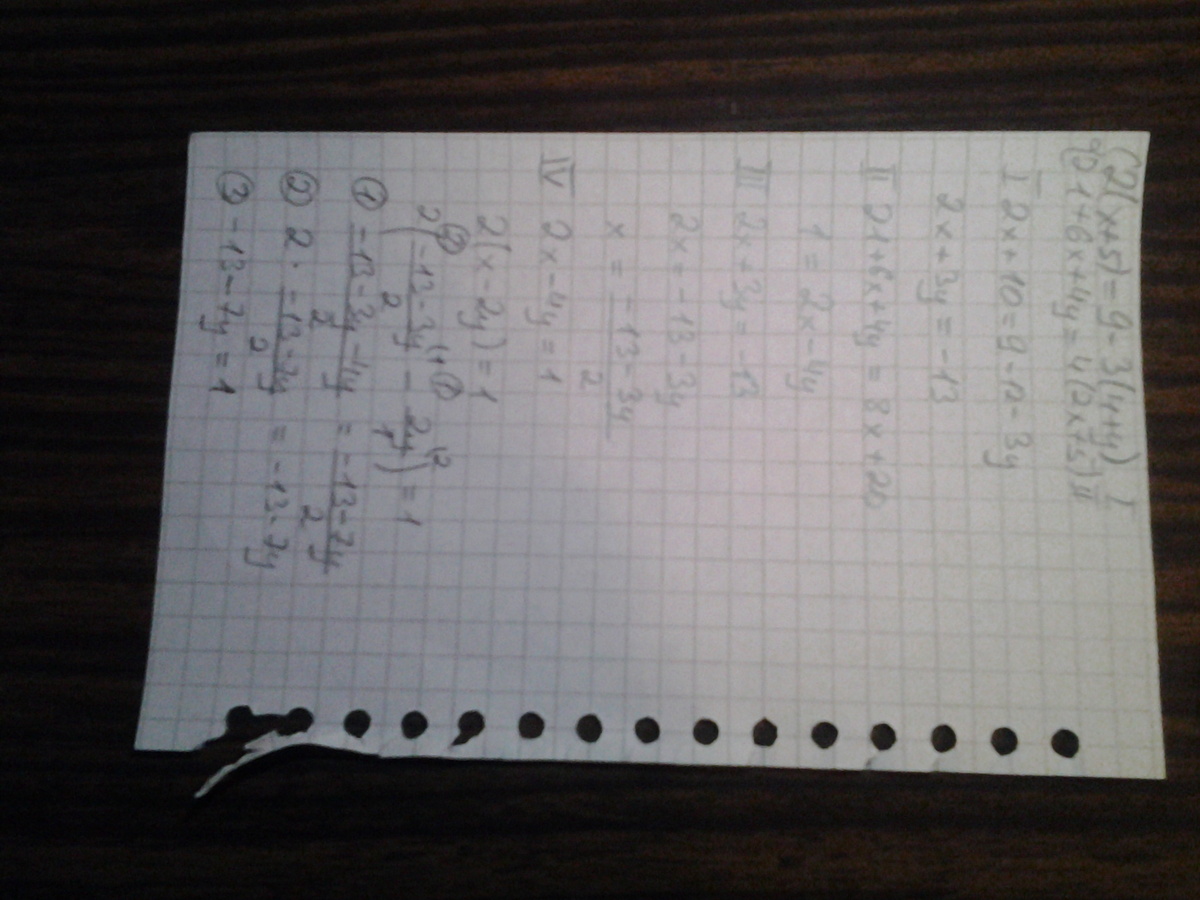 {2(x+5)=9-3(4+y) I
21+6x+4y=4(2x+5) II
I 2x+10=9-12-3y
2x+3y=-13
II 21+6x+4y=8x+20
1=2x-4y
III 2x+3y=-13
2x=-13-3y
x=\frac{-13-3y}{2}
IV 2x-4y=1
2(x-2y)=1
② ①
2(\frac{-13-3y}{2} - \frac{2y}{1})=1
① =\frac{-13-3y-4y}{2} = \frac{-13-7y}{2}
② 2·\frac{-13-7y}{2} = -13-7y
③ -13-7y=1